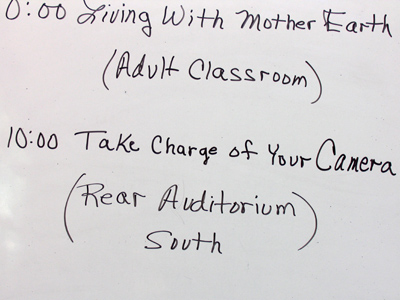 0:00 Living With Mother Earth
(Adult Classroom)
10:00 Take Charge of Your Camera
(Rear Auditorium
South)